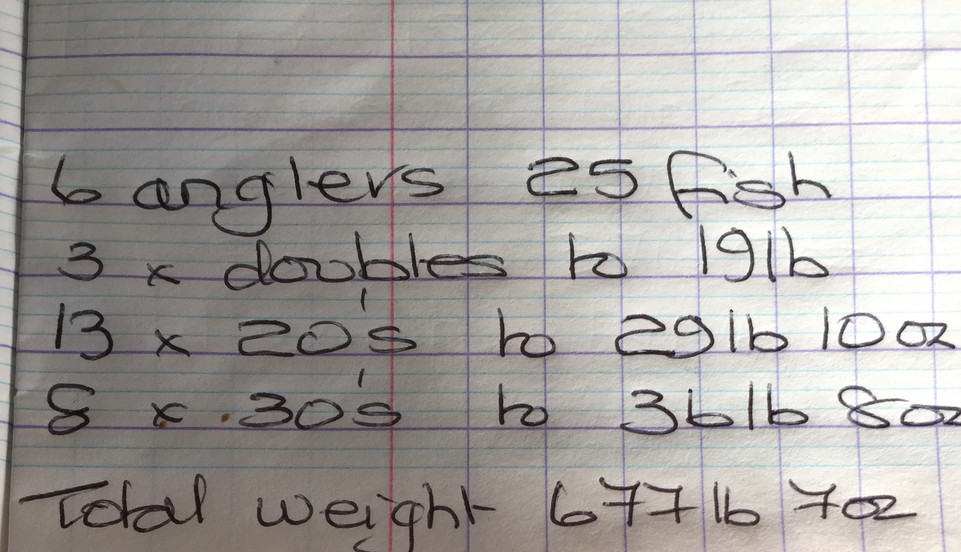 6 anglers 25 fish
3 x doubles to 19lb
13 x 20's to 29lb 10oz
8 x 30's to 36lb 8oz
Total weight 677lb 7oz